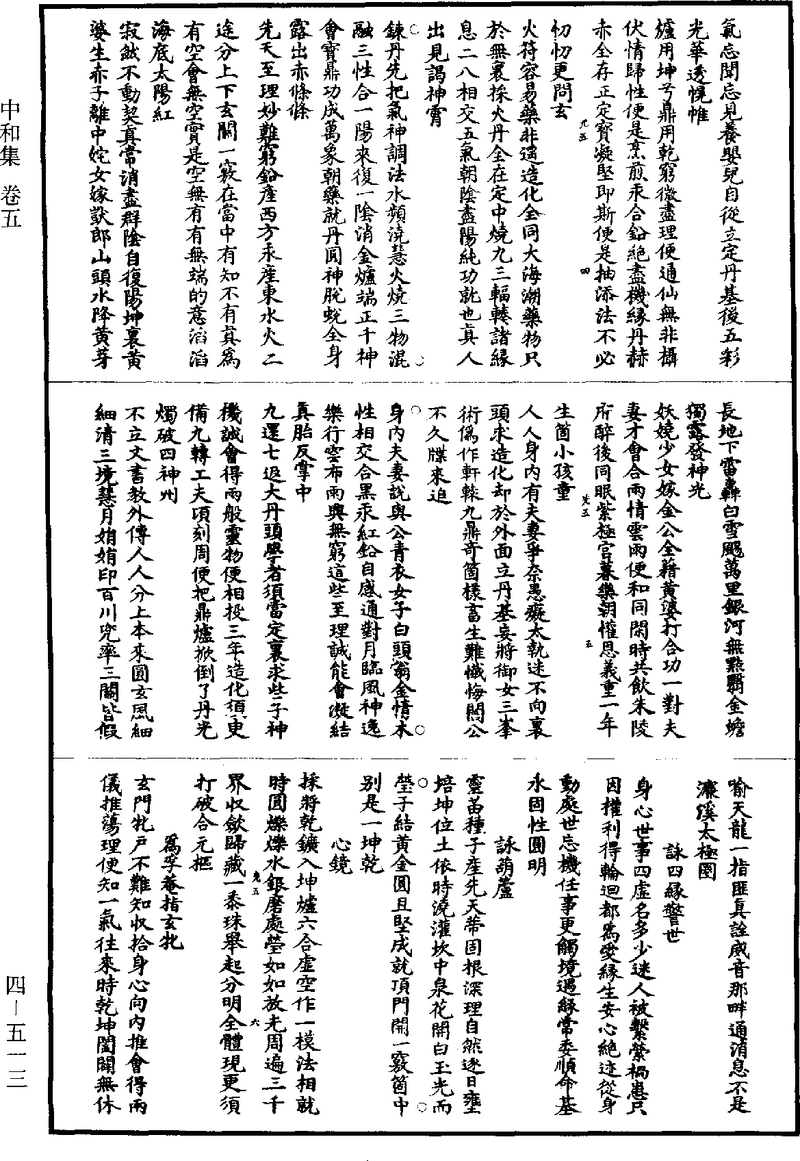 中和集 卷五
四—五一三
氣忘聞忘見養嬰兒自從立定丹基後五彩
光華透幌帷
爐用坤兮鼎用乾窮微盡理便通仙無非攝
伏情歸性便是烹煎汞合鉛絕盡機緣丹赫
赤全存正定寶凝堅即斯便是抽添法不必
忉忉更問玄
火符容易藥非遥造化全同大海潮藥物只
於無裏採火丹全在定中燒九三輻輳諸緣
息二八相交五氣朝陰盡陽純功就也真人
出見謁神霄
鍊丹先把氣神調法水頻澆慧火燒三物混
融三性合一陽來復一陰消金爐端正千神
會寶鼎功成萬象朝藥就丹圓神脫蛻全身
露出赤條條
先天至理妙難窮鉛產西方汞產東水火二
途分上下玄關一竅在當中有知不有真為
有空會無空實是空無有有無端的意滔滔
海底太陽紅
寂然不動契真常消盡群陰自復陽坤裏黃
婆生赤子離中姹女嫁歘郎山頭水降黃芽
長地下雷轟白雪颺萬里銀河無點翳金蟾
獨露發神光
妖嬈少女嫁金公全藉黃婆打合功一對夫
妻才會合兩情雲雨便和同閑時共飲朱陵
府醉後同眠紫極宮暮樂朝懽恩義重一年
生箇小孩童
人人身內有夫妻爭奈愚癡太執迷不向裏
頭求造化却於外面立丹基妄將御女三峯
術偽作軒轅九鼎奇箇樣畜生難懺悔閻公
不久牒來追
身內夫妻說與公青衣女子白頭翁金情木
性相交合黑汞紅鉛自感通對月臨風神逸
樂行雲布雨興無窮這些至理誠能會凝結
真胎反掌中
九還七返大丹頭學者須當定裏求些子神
機誠會得兩般靈物便相投三年造化須更
備九轉工夫頃刻周便把鼎爐掀倒了丹光
燭破四神州
不立文書教外傳人人分上本來圓玄風細
細清三境慧月娟娟印百川兜率三關皆假
喻天龍一指匪真詮威音那畔通消息不是
濂溪太極圈
詠四緣警世
身心世事四虛名多少迷人被繫縈禍患只
因權利得輪迴都為愛緣生安心絕迹從身
動處世忘機任事更觸境遇緣當委順命基
永固性圓明
詠葫蘆
靈苗種子產先天蒂固根深理自然逐日壅
培坤位土依時澆灌坎中泉花開白玉光而
瑩子結黃金圓且堅成就頂門開一竅箇中
別是一坤乾
心鏡
採將乾鑛入坤爐六合虛空作一模法相就
時圓爍爍水銀磨處瑩如如放光周遍三千
界收斂歸藏一黍珠舉起分明全體現更須
打破合元樞
為孚菴指玄牝
玄門牝戶不難知收拾身心向內推會得兩
儀推蕩理便知一氣往來時乾坤闔闢無休